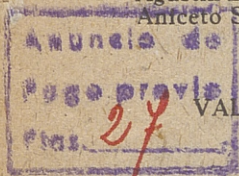 Aniceto S
Anuncio de
Pago previo
VAL
Ptas. 27